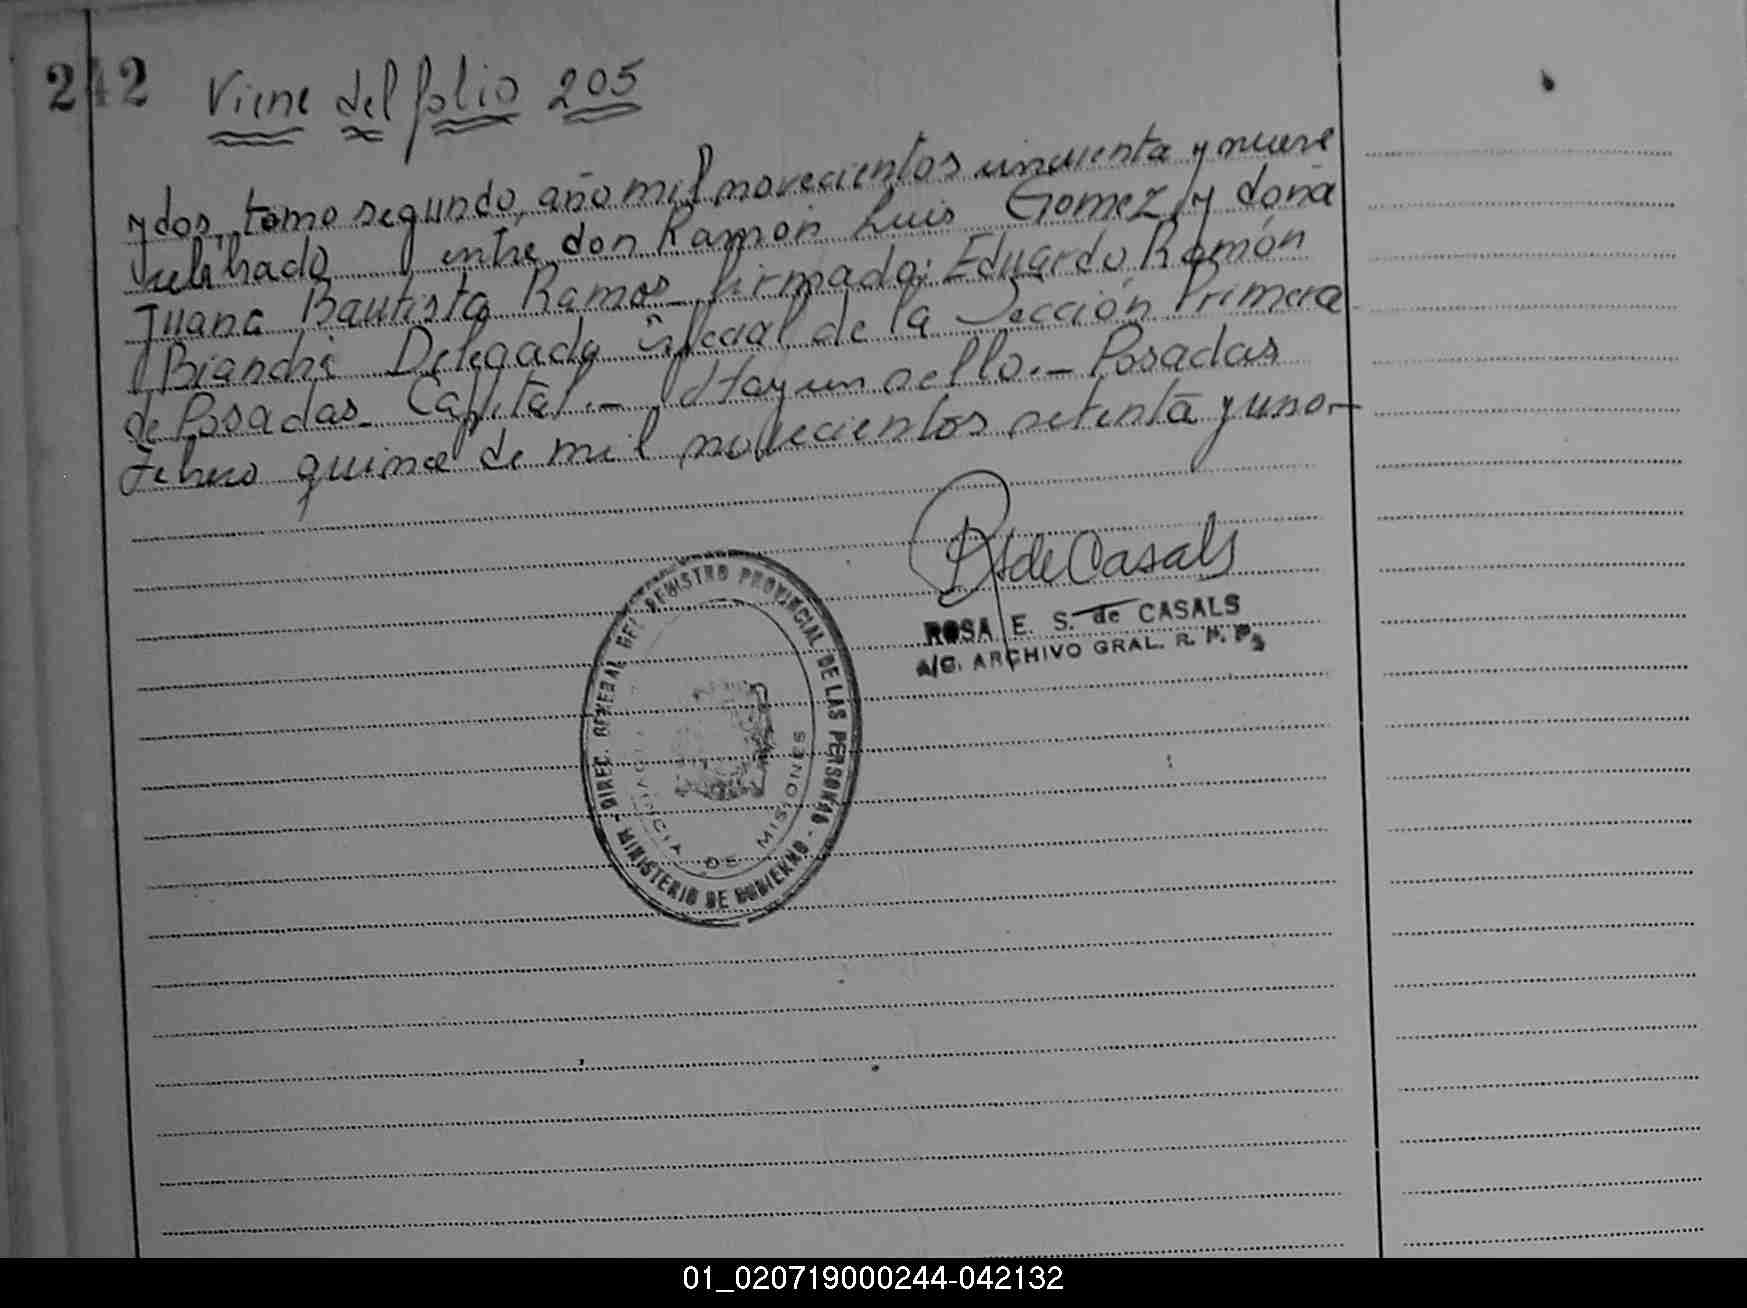 242
Viene del folio 205
y dos, tomo segundo, año mil novecientos cincuenta y nueve
celebrado entre don Ramón Luis Gomez y doña
Juana Bautista Ramos firmado: Eduardo Ramón
Bianchi Delegado de la Sección Primera
de Posadas Capital.- Hay un sello.- Posadas
Febrero quince de mil novecientos setenta y uno.-
de Casals
ROSA E. S. de CASALS
A/C. ARCHIVO GRAL. R. P. P.
DIREC. GENERAL DEL REGISTRO PROVINCIAL DE LAS PERSONAS - MINISTERIO DE GOBIERNO -
PROVINCIA DE MISIONES
01_020719000244-042132